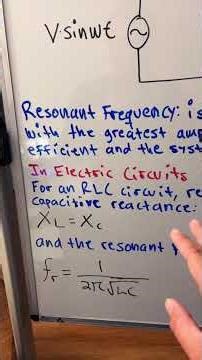 V·sinωt
Resonant Frequency: is
with the greatest
efficient and the
In Electric Circuits
For an RLC circuit,
capacitive reactance:
X_L = X_c
and the resonant
f_r = 1 / 2π√LC